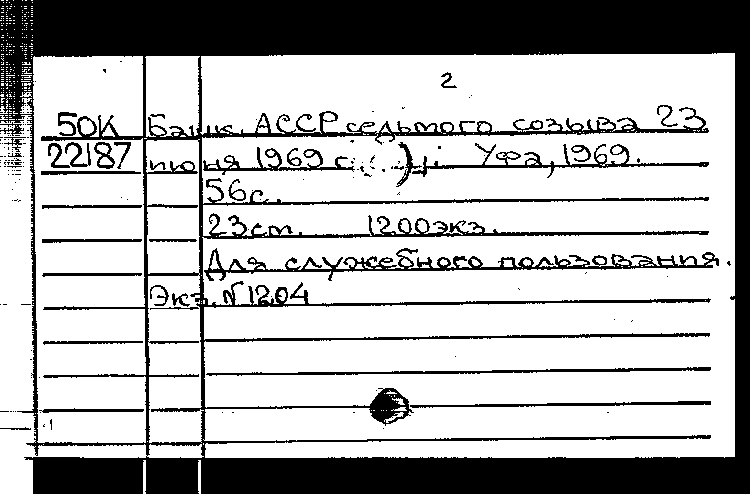 2
50К Башк. АССР седьмого созыва 23
22187 июня 1969 г. Уфа, 1969.
56с.
23см. 1200экз.
Для служебного пользования.
Экз. N 1204